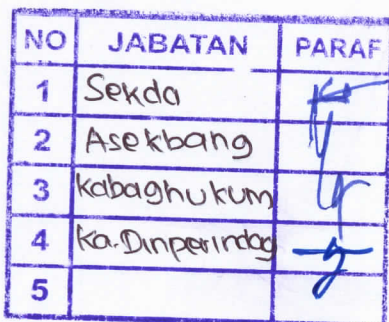 NO JABATAN PARAF
1 Sekda
2 Asekbang
3 Kabaghukum
4 Ka.Dinperindag
5